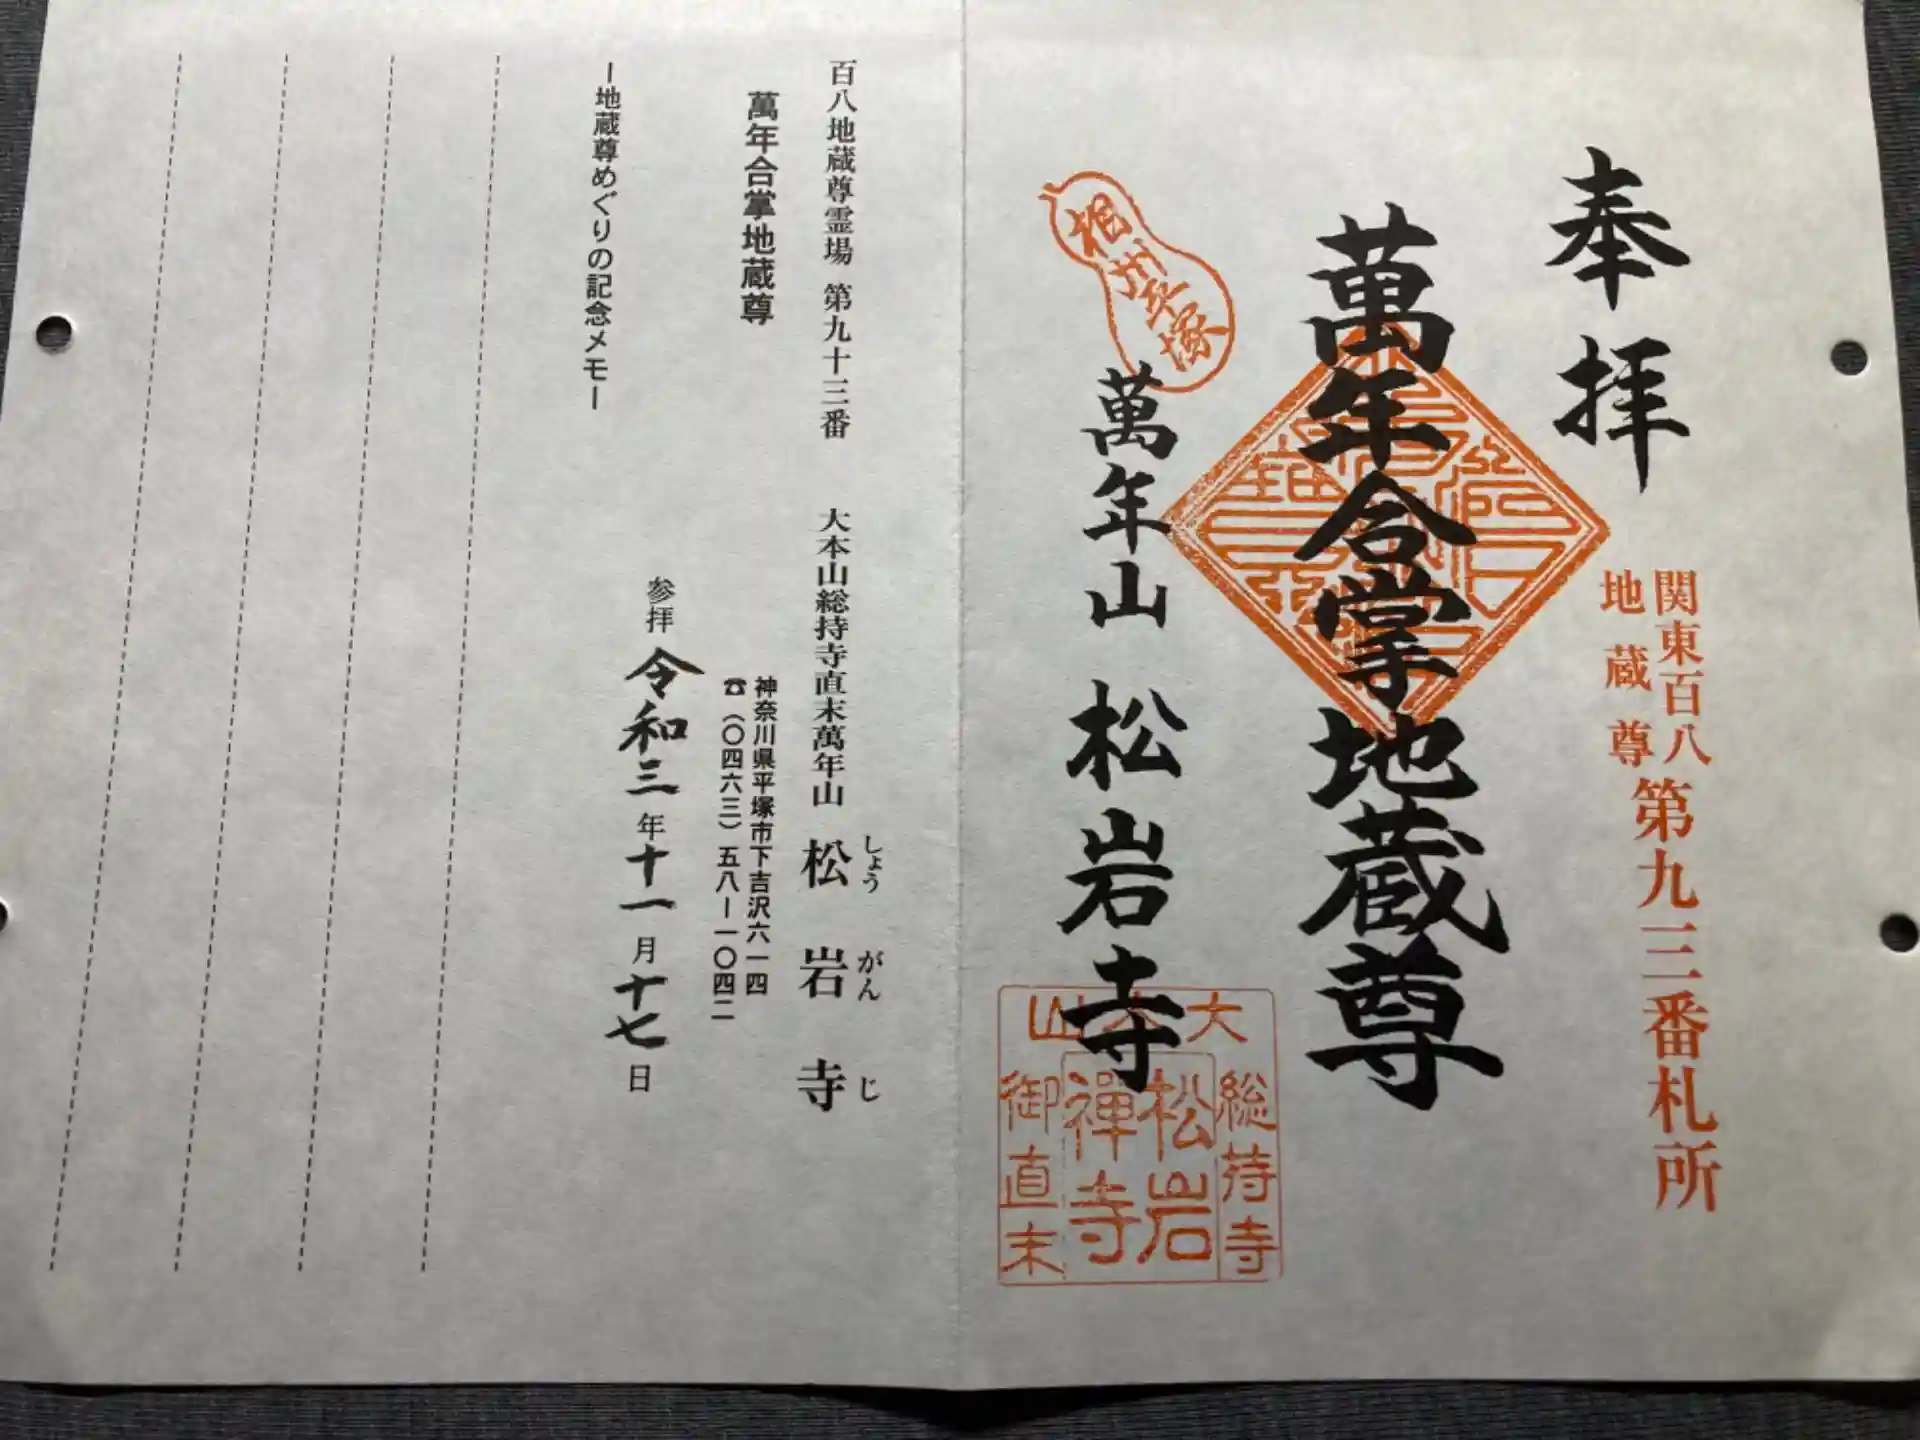 奉拝
関東百八
地蔵尊
第九三番札所
萬年合掌地蔵尊
相州平塚
萬年山 松岩寺
大本山
総持寺
松岩
禅寺
御直末
百八地蔵尊霊場 第九十三番 大本山総持寺直末萬年山 松岩寺
しょう がん じ
萬年合掌地蔵尊
神奈川県平塚市下吉沢六一四
☎(〇四六三)五八ー一〇四二
ー地蔵尊めぐりの記念メモー
参拝 令和三年十一月十七日